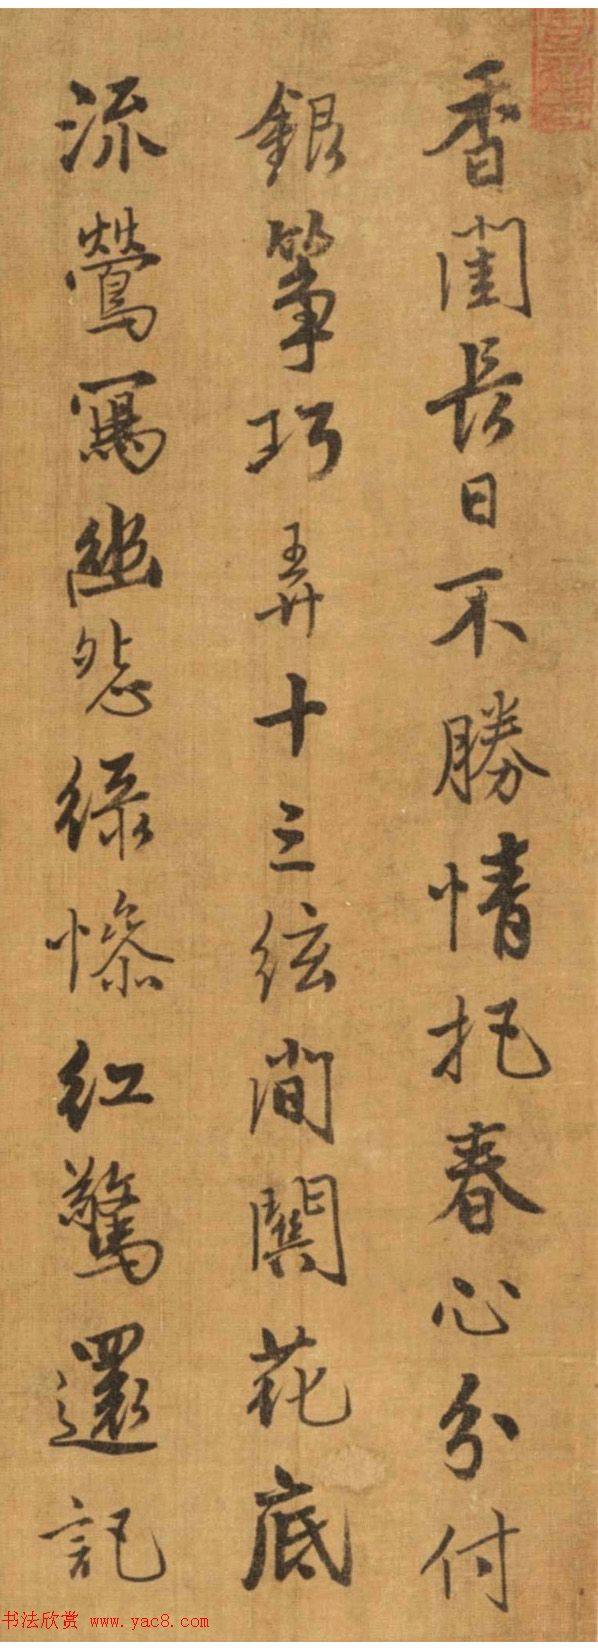 香閨長日不勝情把春心分付
銀箏巧弄十三弦間關花底
流鶯寫幽怨綠慘紅驚還記
书法欣赏 www.yac8.com